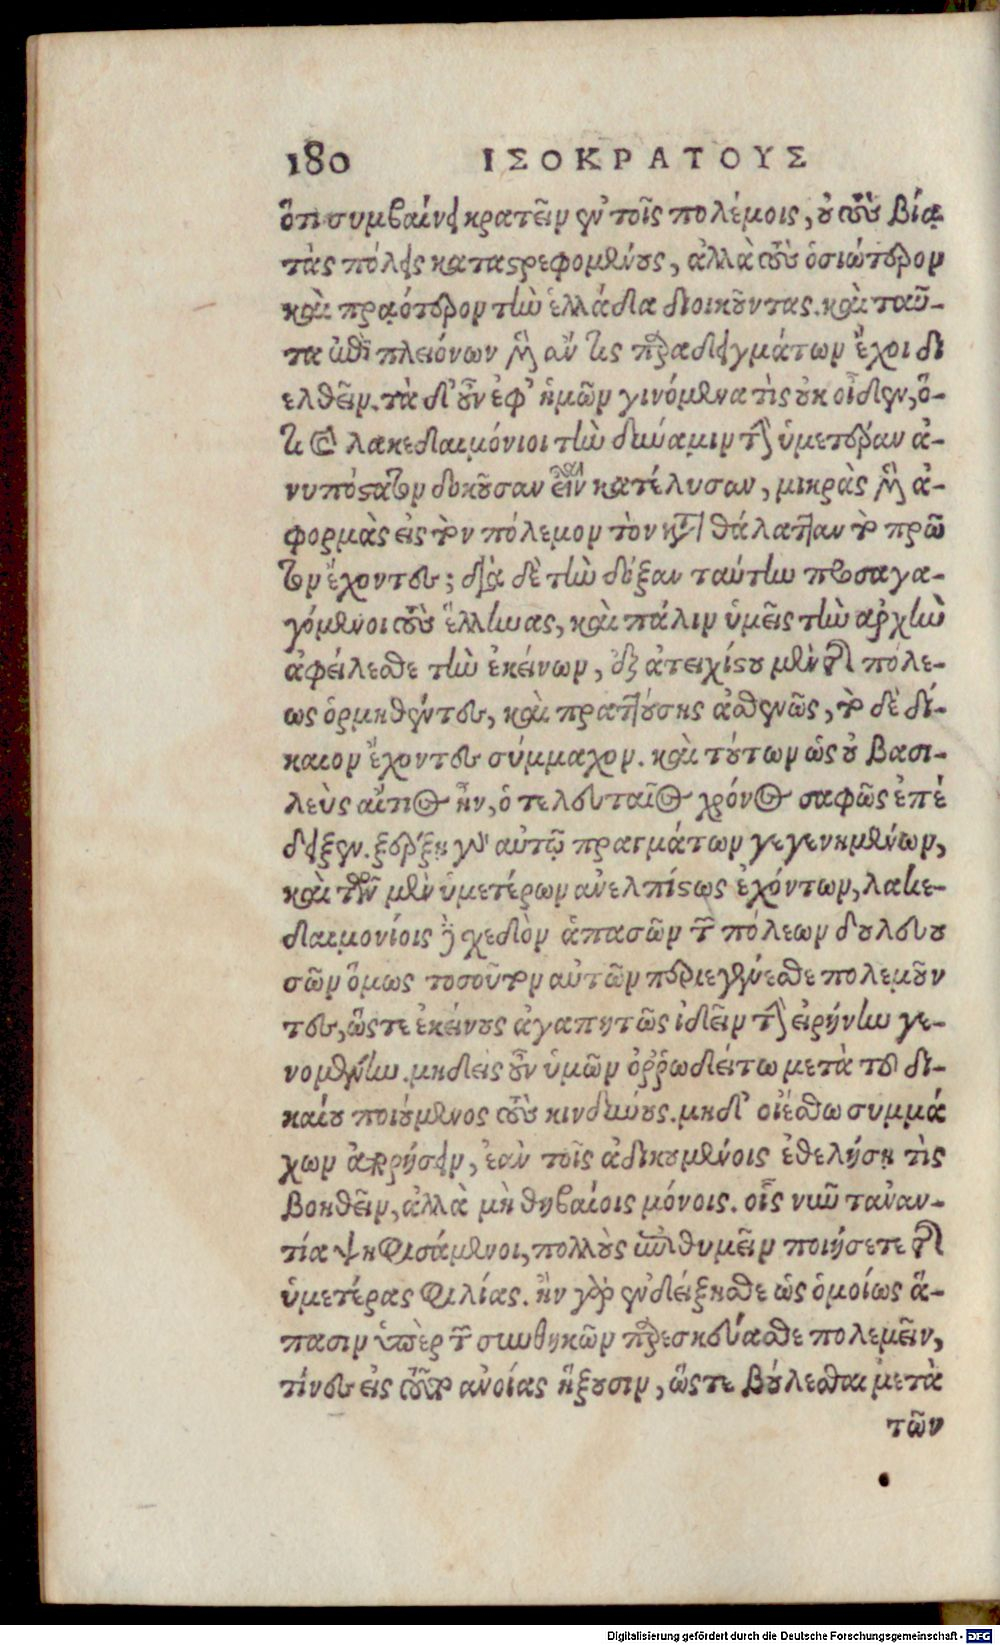 180 ΙΣΟΚΡΑΤΟΥΣ
ὅτι συμβαίνει κρατεῖν ἐν τοῖς πολέμοις, οὐ τοὺς βίᾳ
τὰς πόλεις καταστρεφομένους, ἀλλὰ τοὺς ὁσιώτερον
καὶ πραότερον τὴν ἑλλάδα διοικοῦντας. καὶ ταῦ-
τα ἐπὶ πλειόνων μὲν ἄν τις παραδειγμάτων ἔχοι δι
ελθεῖν. τὰ δ' οὖν ἐφ' ἡμῶν γινόμενα τὶς οὐκ οἶδεν, ὅ-
τι λακεδαιμόνιοι τὴν δύναμιν τὴν ὑμετέραν ἀ-
νυπόστατον δοκοῦσαν εἶναι κατέλυσαν, μικρὰς μὲν ἀ-
φορμὰς εἰς τὸν πόλεμον τὸν κατὰ θάλατταν τὸ πρῶ
τον ἔχοντες; διὰ δὲ τὴν δόξαν ταύτην προσαγα-
γόμενοι τοὺς ἕλληνας, καὶ πάλιν ὑμεῖς τὴν ἀρχὴν
ἀφείλεσθε τὴν ἐκείνων, ἐξ ἀτειχίστου μὲν τῆς πόλε-
ως ὁρμηθέντες, καὶ πραττούσης ἀσθενῶς, τὸ δὲ δί-
καιον ἔχοντες σύμμαχον. καὶ τούτων ὡς οὐ βασι-
λεὺς αἴτιος ἦν, ὁ τελευταῖος χρόνος σαφῶς ἐπέ
δειξεν. ἔξω αὐτῷ πραγμάτων γεγενημένων,
καὶ τῶν μὲν ὑμετέρων ἀνελπίστως ἐχόντων, λακε-
δαιμονίοις δὲ σχεδὸν ἁπασῶν τῶν πόλεων δουλευου
σῶν ὅμως τοσοῦτον αὐτῶν περιεγένεσθε πολεμοῦν
τες, ὥστε ἐκείνους ἀγαπητῶς ἰδεῖν τὴν εἰρήνην γε-
νομένην. μηδεὶς οὖν ὑμῶν ὀῤῥωδείτω μετὰ τοῦ δι-
καίου ποιούμενος τοὺς κινδύνους. μηδ' οἰέσθω συμμά
χων ἀπορήσειν, ἐὰν τοῖς ἀδικουμένοις ἐθελήσῃ τὶς
βοηθεῖν, ἀλλὰ μὴ θηβαίοις μόνοις. οἷς νῦν ταναν-
τία ψηφισάμενοι, πολλοὺς ἐπιθυμεῖν ποιήσετε τῆς
ὑμετέρας φιλίας. ἢν γὰρ ἐνδείξησθε ὡς ὁμοίως ἅ-
πασιν ὑπὲρ τῶν συνθηκῶν παρεσκεύασθε πολεμεῖν,
τίνες εἰς τοῦτο ἀνοίας ἥξουσιν, ὥστε βούλεσθαι μετὰ
τῶν
Digitalisierung gefördert durch die Deutsche Forschungsgemeinschaft - DFG